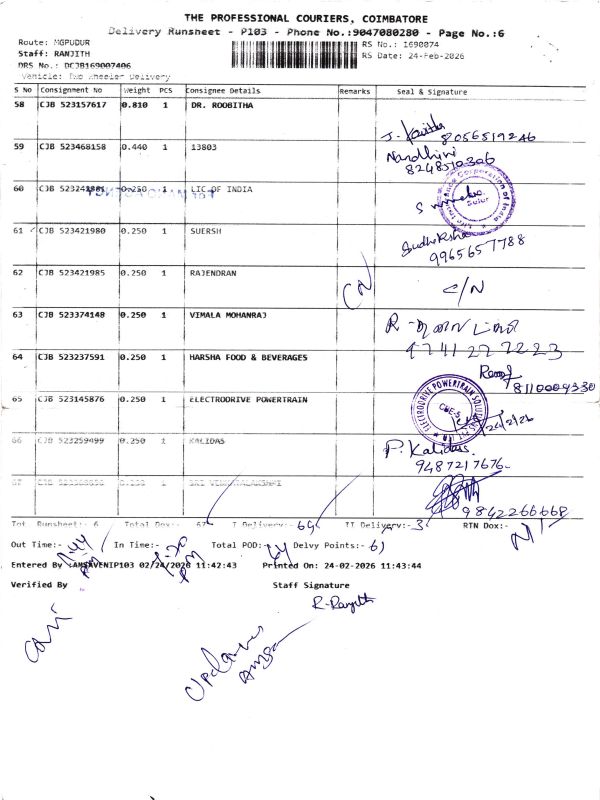 THE PROFESSIONAL COURIERS, COIMBATORE
Delivery Runsheet - P103 - Phone No.:9047080280 - Page No.:6
Route: MGPUDUR
Staff: RANJITH
DRS No.: DCJB169007406
Vehicle: Two Wheeler Delivery
RS No.: 1690074
RS Date: 24-Feb-2026
S No Consignment No Weight PCS Consignee Details Remarks Seal & Signature
58 CJB 523157617 0.810 1 DR. ROOBITHA
J. Kavitha 8056519246
59 CJB 523468158 0.440 1 13803
Nandhini
8248570306
60 CJB 0.250 1 LIC OF INDIA
Sulur
61 CJB 523421980 0.250 1 SUERSH
Sudhiksha
9965657788
62 CJB 523421985 0.250 1 RAJENDRAN
C/N C/N
63 CJB 523374148 0.250 1 VIMALA MOHANRAJ
R -
9741277223
64 CJB 523237591 0.250 1 HARSHA FOOD & BEVERAGES
8110009330
65 CJB 523145876 0.250 1 ELECTRODRIVE POWERTRAIN
ELECTRODRIVE POWERTRAIN SOLUTIONS
CBE-5
24/2/26
66 CJB 523259499 0.250 1 KALIDAS
P. Kalidass
9487217676
67 CJB 0.250 1 SRI
9842266668
Tot Runsheet:- 6 Total Dox:- 67 I Delivery:- 64 II Delivery:- 3 RTN Dox:- Nil
Out Time:- In Time:- Total POD:- 64 Delvy Points:- 61
PM PM
Entered By :ANSAVENIP103 02/24/2026 11:42:43 Printed On: 24-02-2026 11:43:44
Verified By Staff Signature
R. Ranjith